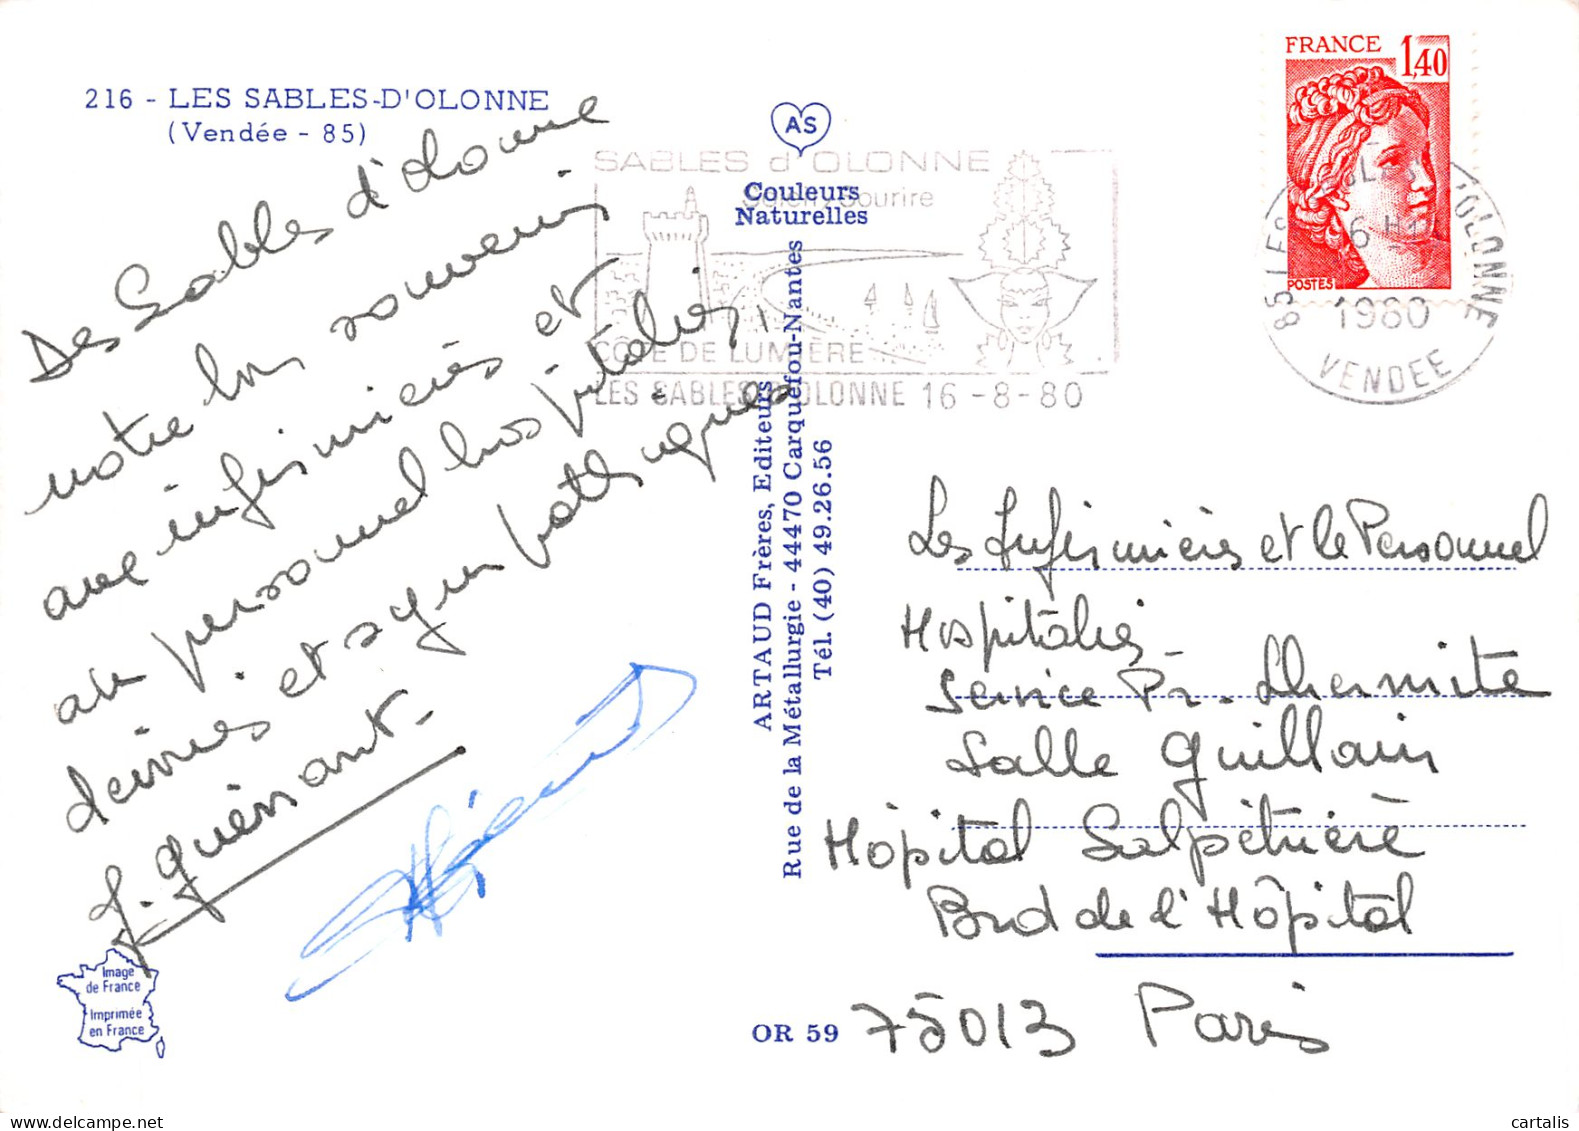 216 - LES SABLES-D'OLONNE
(Vendée - 85)
Des Sables d'Olonne
notre bon souvenir
aux infirmières et
au personnel hospitalier,
et sympathiques
J. Guérnant.
Image
de France
Imprimée
en France
AS
Couleurs
Naturelles
ARTAUD Frères, Editeurs
Rue de la Métallurgie - 44470 Carquefou-Nantes
Tél. (40) 49.26.56
OR 59
SABLES d'OLONNE
Soleil, Sourire
COTE DE LUMIÈRE
LES SABLES D'OLONNE 16-8-80
FRANCE
1,40
POSTES
85 LES SABLES D'OLONNE
16 H
1980
VENDEE
Les Infirmières et le Personnel
Hospitalier
Service Pr. Lhermitte
Salle Guillain
Hôpital Salpêtrière
Bvd de l'Hôpital
75013 Paris
cartalis